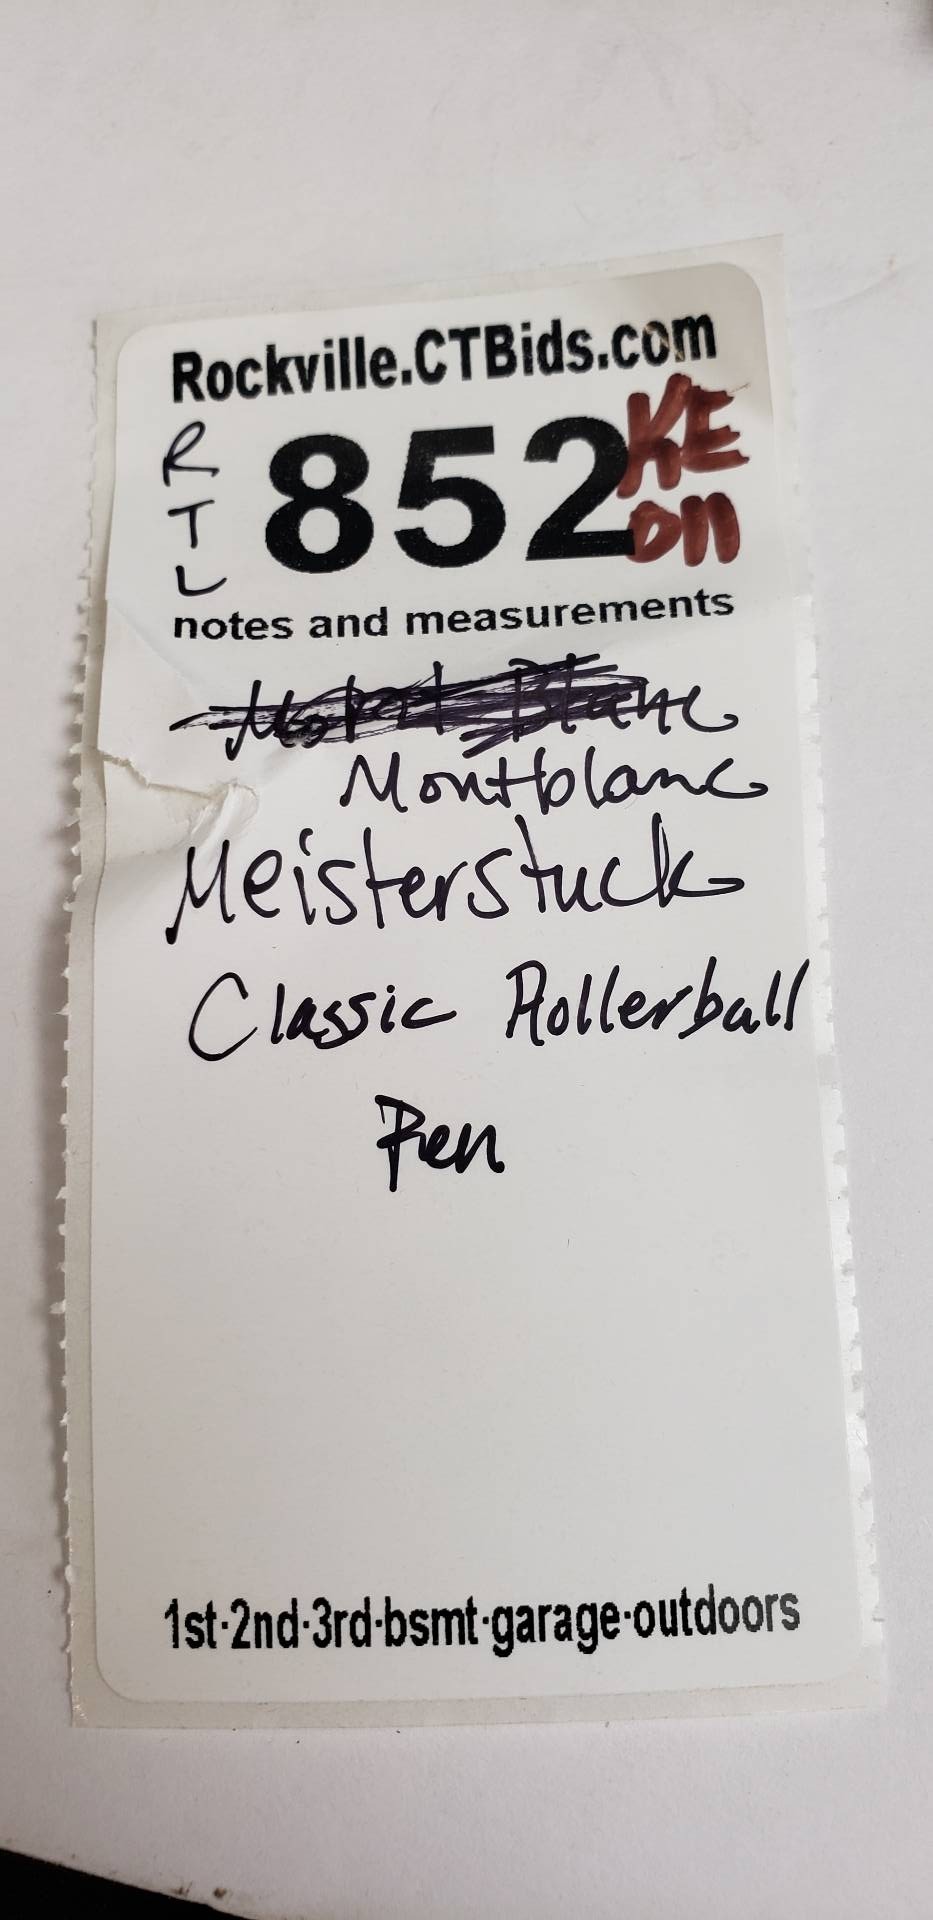 Rockville.CTBids.com
RTL
852
KE
on
notes and measurements
Montblanc
Meisterstuck
Classic Rollerball
Pen
1st·2nd·3rd·bsmt·garage·outdoors